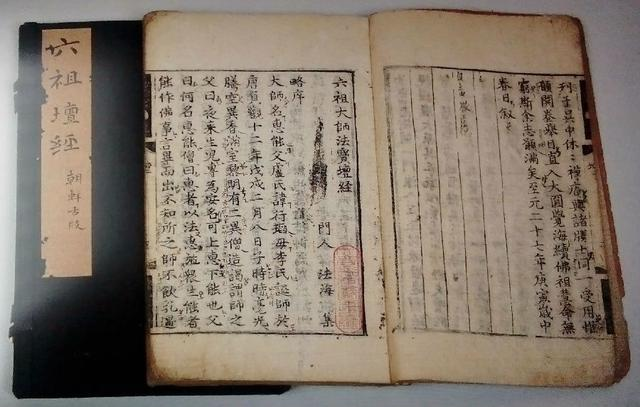 六祖壇經
朝鮮古版
刊于吳中休〻禪庵與諸勝士同一受用惟
願開卷舉目直入大圓覺海續佛祖慧命無
窮斯余志願滿矣至元二十七年庚寅歲中
春日叙
六祖大師法寶壇經
門人 法海 集
略序
大師名惠能父盧氏諱行瑫母李氏誕師於
唐貞觀十二年戊戌二月八日子時時毫光
騰空異香滿室黎明有二異僧造謁謂師之
父曰夜來生兒專為安名可上惠下能也父
曰何名惠能僧曰惠者以法惠施衆生能者
能作佛事言畢而出不知所之師不飲乳遇